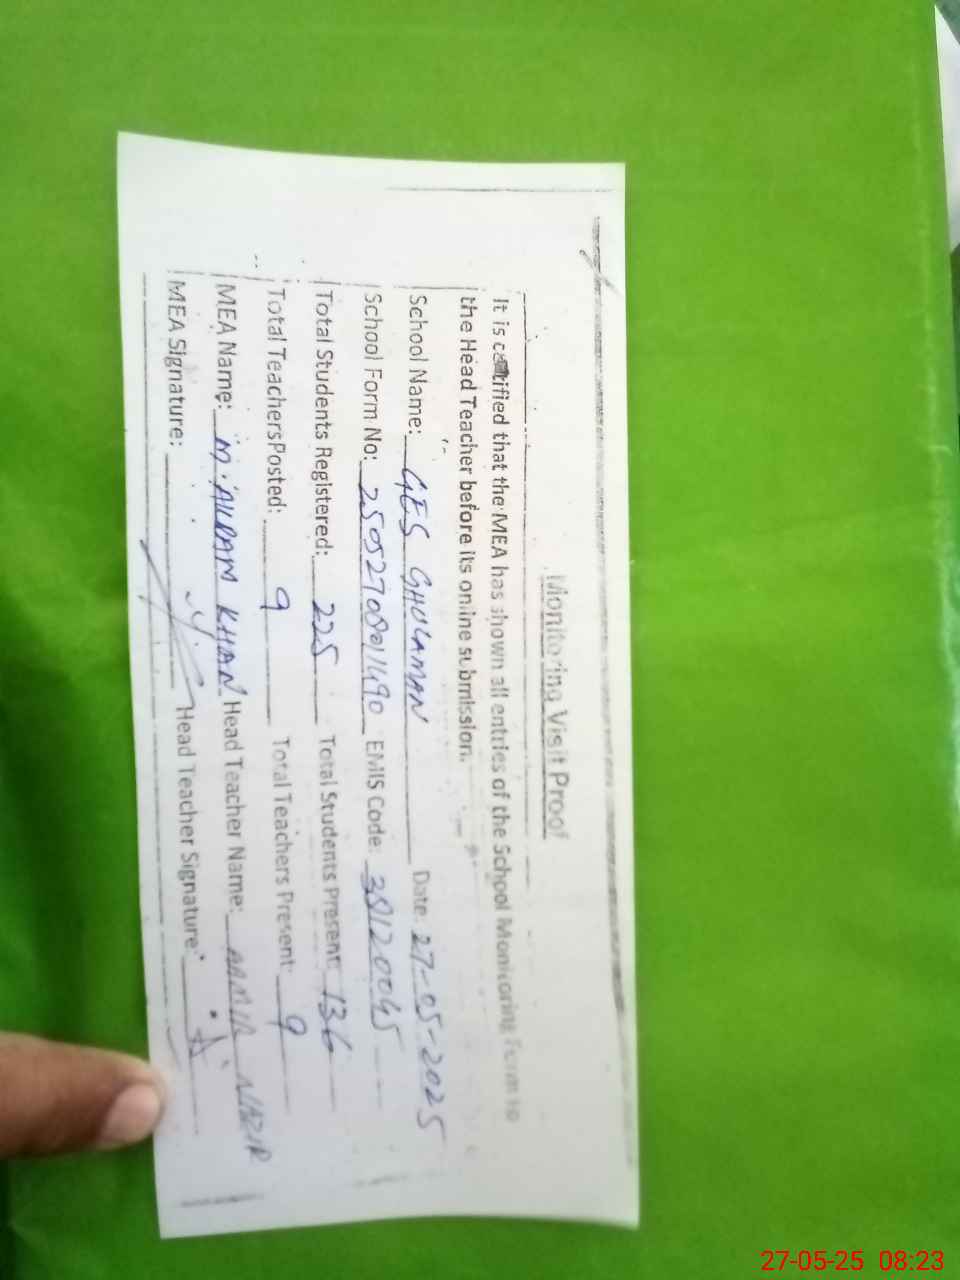 Monitoring Visit Proof
It is certified that the MEA has shown all entries of the School Monitoring Form to
the Head Teacher before its online submission.
School Name: GES GHULAMAN Date: 27-05-2025
School Form No: 2505270801490 EMIS Code: 38120045
Total Students Registered: 225 Total Students Present: 136
Total Teachers Posted: 9 Total Teachers Present: 9
MEA Name: KHAN Head Teacher Name: NAZIR
MEA Signature: Head Teacher Signature:
27-05-25 08:23